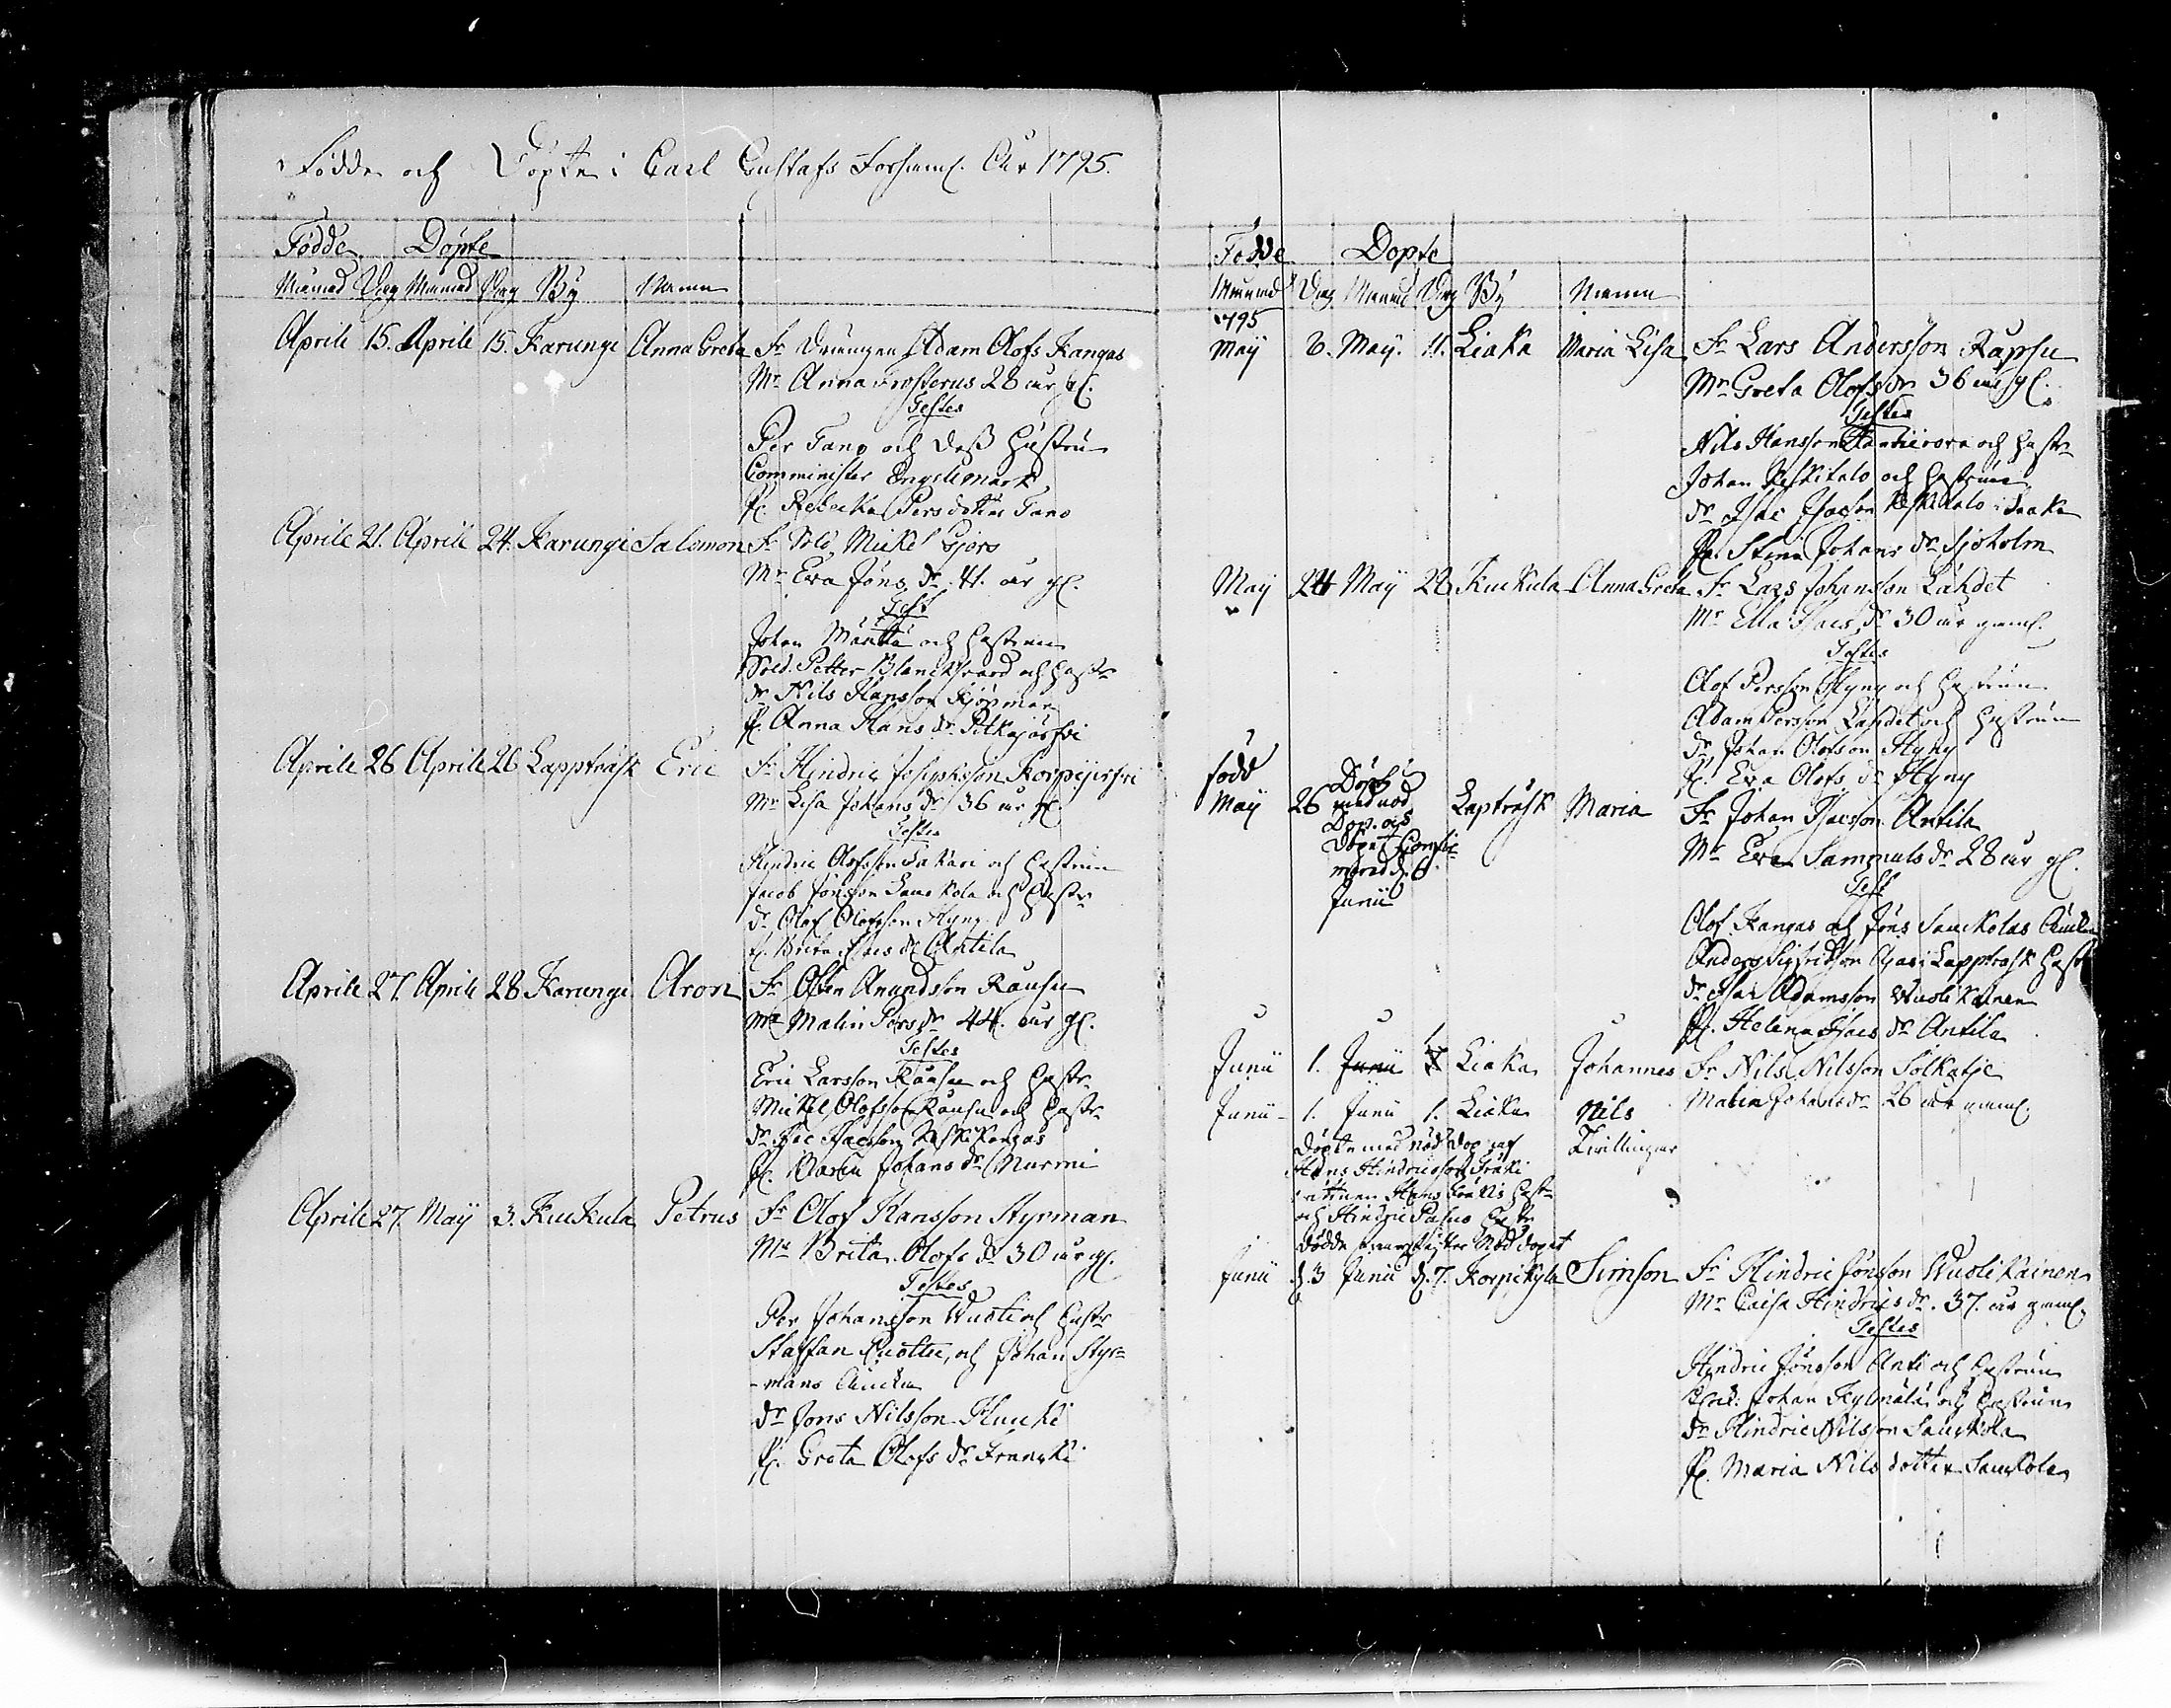 Födde och Döpte i Carl Gustafs Forsaml. Åhr 1795.
Födde Döpte
Månad Dag Månad Dag By Namn
Aprile 15. Aprile 15. Karungi Anna Greta Fr Drängen Adam Olofs Kangas
Mr Anna Frosterus 28 år gl.
Testes
Per Tano och dess hustru
Comminister Engelmark
P. Rebecka Persdotter Tano
Aprile 21. Aprile 24. Karungi Salomon Fr Sold. Mickel Gjörs
Mr Eva Jöns dr 41. år gl.
Test
Johan Mänttä och hustrun
Sold. Petter Blancksvärd och hustr
dr Nils Hansson Kjöpman
P. Anna Hans dr Pitkäjärfvi
Aprile 26 Aprile 26 Lappträsk Eric Fr Hindric Josephsson Korpijerfvi
Mr Lisa Johans dr 36 år gl.
Testes
Hindric Olofsson Lakari och hustrun
Jacob Jönsson Lauckola och hustr
dr Olof Olofsson Hyny
P. Brita Isacs dr Antila
Aprile 27. Aprile 28 Karungi Aron Fr Östen Anundsson Rautu
Mr Malin Pers dr 44. år gl.
Testes
Eric Larsson Rautu och hustr
Mickel Olofsson Rautu och hustr
dr Isac Isacsson Keskikangas
P. Maria Johans dr Nurmi
Aprile 27. May 3. Kuckula Petrus Fr Olof Hansson Styrman
Mr Brita Olofs dr 30 år gl.
Testes
Per Johansson Wuoti och hustr
Staffan Ruottu, och Johan Styr=
-mans Änckia
dr Jöns Nilsson Huuki
P. Greta Olofs dr Franski
Födde Döpte
Månad Dag Månad Dag By Namn
1795
May 6. May. 11. Liaka Maria Lisa Fr Lars Andersson Kapsu
Mr Greta Olofs dr 36 år gl.
Testes
Nils Hansson och hustr
Johan Keskitalo och hustrun
dr Isac Isacson Keskitalo i Liaka
P. Stina Johans dr Sjöholm
May 24 May 28 Kuckula Anna Greta Fr Lars Johansson Lahdet
Mr Ella Isacs dr 30 år gaml.
Testes
Olof Persson Hyny och hustrun
Adam Persson Lahdet och hustrun
dr Johan Olofson Hyny
P. Eva Olofs dr Hyny
född
May 26 Döpt
med nöd
Dop. och
Döpet Confir=
merad d. 6
Junii
Lapträsk Maria Fr Johan Isacsson Antila
Mr Eva Sammuls dr 28 år gl.
Test
Olof Kangas och Jöns Lauckolas Änckia
Anders Sigfridsson Ojas i Lappträsk hustr
dr Isac Adamsson Wuolikainen
P. Helena Isacs dr Antila
Junii 1. Junii 1 Liaka Johannes Fr Nils Nilsson Sölkatje
Junii 1. Junii 1. Liaka Nils Malin Johansdr 26 år gaml.
Döpte med nöddop af Tvillingar
Hans Hindricsson Fräki
Hans Fräkis hustr
och Hindric Pasuo hustr
Dödde efter Nöddopet
Junii d. 3 Junii d. 7. Korpikylä Simson Fr Hindric Jönsson Wuolikainen
Mr Caisa Hindrics dr. 37. år gaml.
Testes
Hindric Jönsson Anti och hustrun
Johan Kylmälä och hustrun
dr Hindric Nilsson Lauckola
P. Maria Nils dotter Lauckola